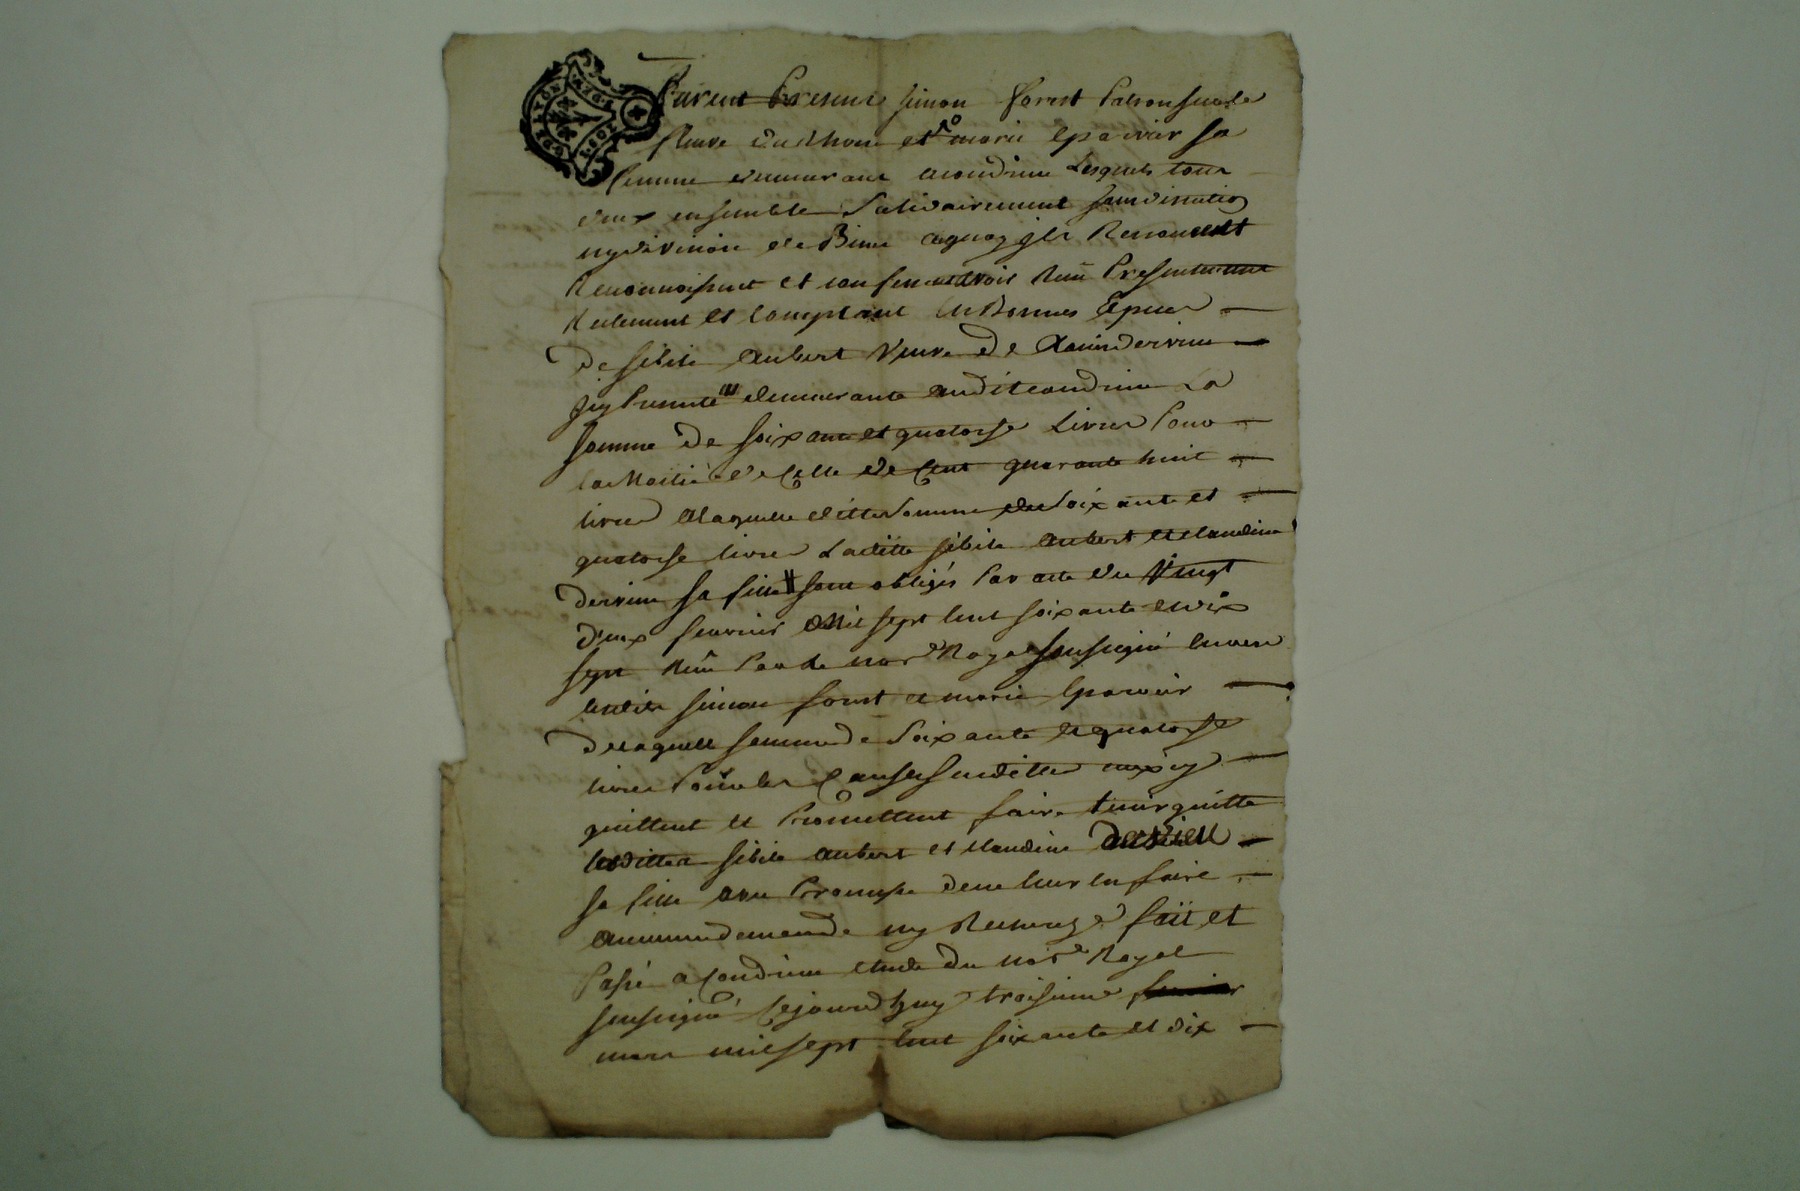 furent Presents simon forest Patron sur le
fleuve du Rhone et marie eparvier sa
femme demeurant acondrieu Lesquels tous
deux ensemble solidairement sans discution
ny division de Biens aquoy jls Renoncent
Reconnoissent et confessent avoir Reçu Presentement
Reelement et Comptant en Bonnes Especes
De sibile aubert veuve De
jcy Presente demeurante audit condrieu La
somme De soixante et quatorse Livres Pour
la Moitié de Celle de Cent quarante huit
livres a laquelle ditte somme de soixante et
quatorse livres Laditte sibile aubert et claudine
sa fille sont obligés Par acte du Vingt
deux fevrier Mil sept cent soixante et dix
sept Reçu Par le no.re Royal soussigné envers
lesdits simon forest et marie eparvier
De laquelle somme de soixante et quatorse
livres Pour les Causes susdittes
quittent et Promettent faire tenir quitte
lesdittes sibile aubert et claudine
sa fille avec Promesse de ne leur en faire
aucune demande ny Recherche fait et
Passé a Condrieu etude du no.re Royal
soussigné Cejourd'huy troisieme
mars mil sept cent soixante et dix